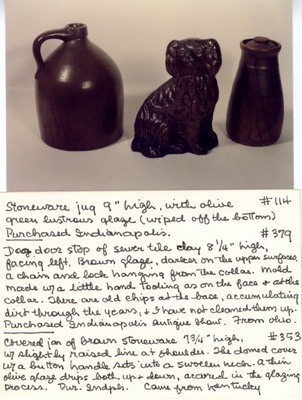 Stoneware jug 9" high, with olive #114
green lustrous glaze (wiped off the bottom)
Purchased Indianapolis.
#379
Dog door stop of sewer tile clay 8 1/4" high,
facing left. Brown glaze, darker on the upper surfaces,
a chain and lock hanging from the collar. Mold
made w/a little hand tooling as on the face & at the
collar. There are old chips at the base, accumulating
dirt through the years, & I have not cleaned them up.
Purchased Indianapolis antique show. From Ohio.
Covered jar of brown stoneware 7 3/4" high, #353
w/ slightly raised line at shoulder. The domed cover
w/a button handle sets into a swollen neck. A thin
olive glaze drips both up & down, accrued in the glazing
process. Pur. Indpls. Came from Kentucky